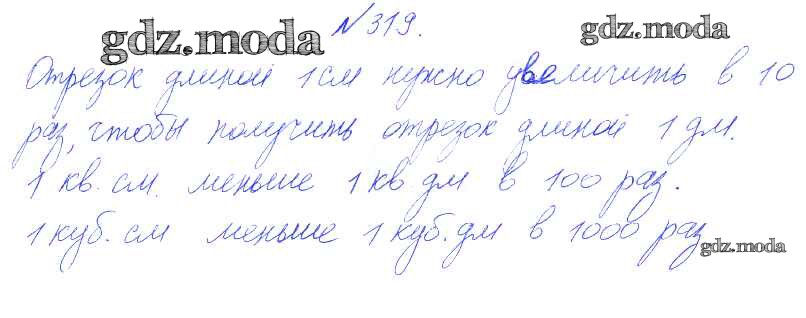 gdz.moda №319. gdz.moda
Отрезок длиной 1 см нужно увеличить в 10
раз, чтобы получить отрезок длиной 1 дм.
1 кв. см. меньше 1 кв. дм в 100 раз.
1 куб. см меньше 1 куб. дм в 1000 раз
gdz.moda